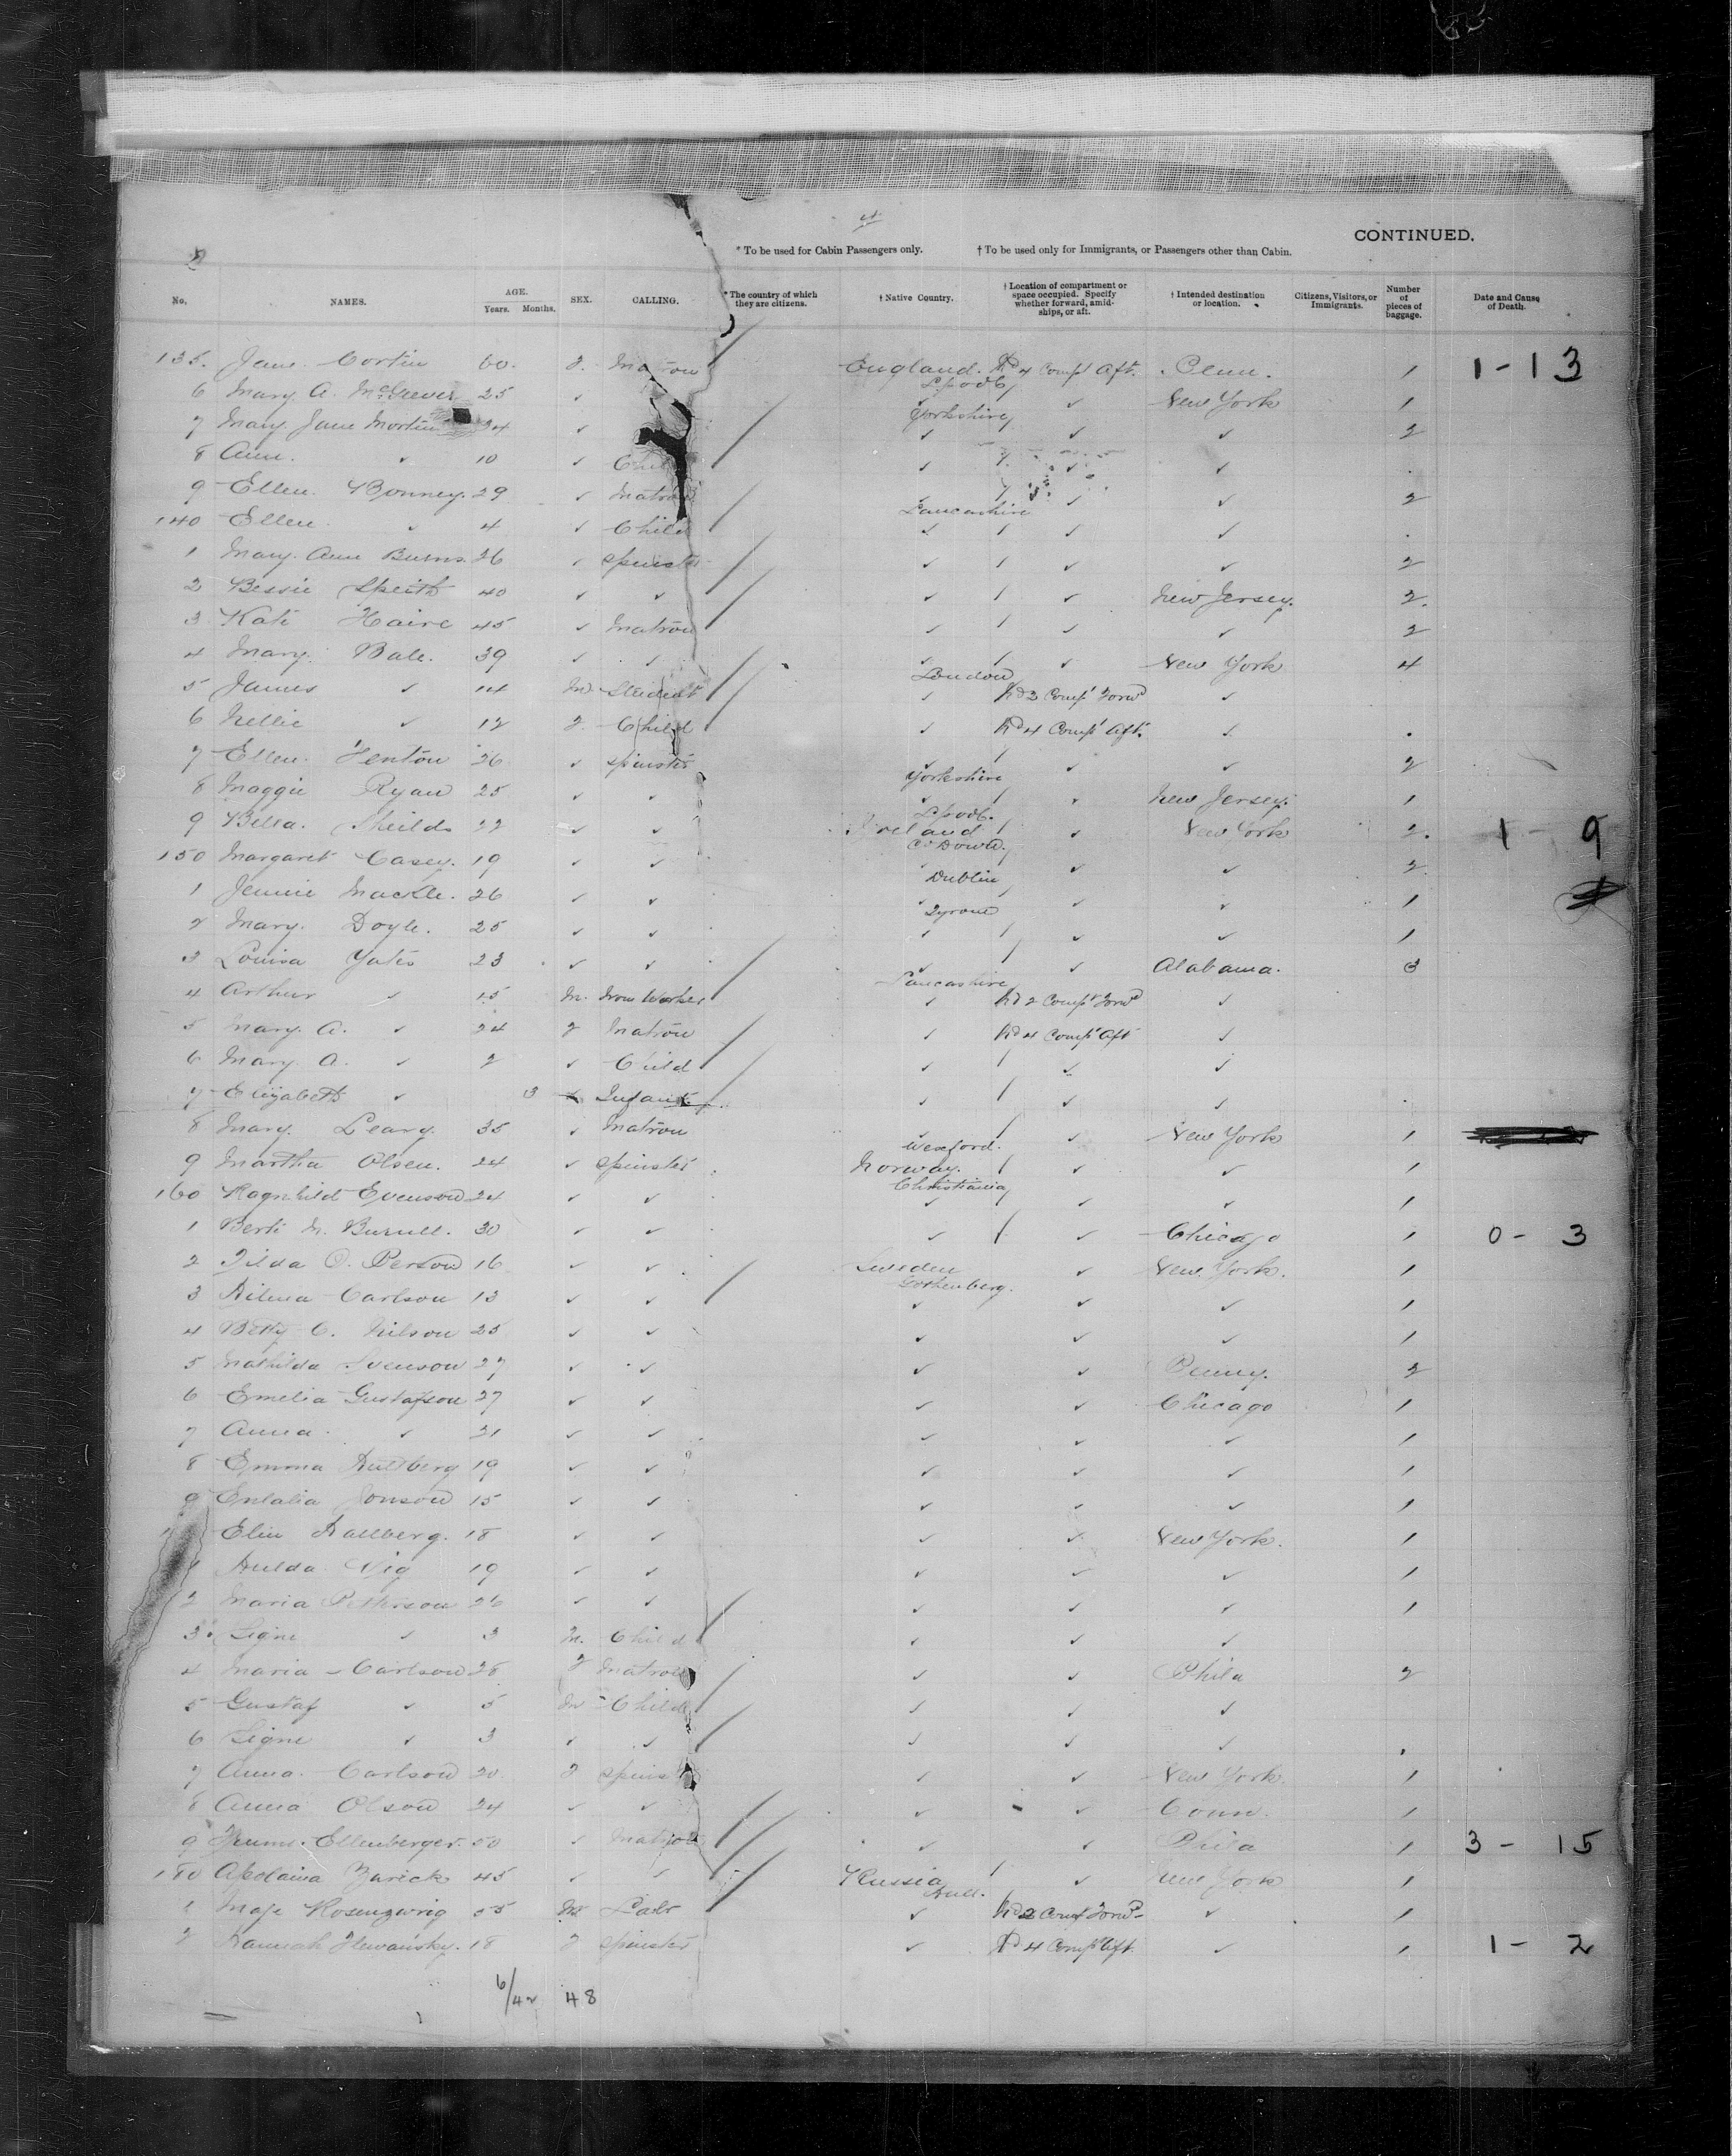 CONTINUED.
* To be used for Cabin Passengers only. † To be used only for Immigrants, or Passengers other than Cabin.
No. NAMES. AGE. Years. Months. SEX. CALLING. *The country of which they are citizens. † Native Country. † Location of compartment or space occupied. Specify whether forward, amidships, or aft. † Intended destination or location. Citizens, Visitors, or Immigrants. Number of pieces of baggage. Date and Cause of Death.
135. Jane 60. F. Matron England. Lpool No 4 Compt Aft. Penn. 1 1-13
6 Mary A. 25 ✓ Yorkshire ✓ New York 1
7 Mary Jane Mortin 34 ✓ ✓ ✓ ✓ 2
8 Ann. ✓ 10 ✓ Child ✓ ✓ ✓
9 Ellen. Bonney. 29 ✓ Matron Lancashire ✓ ✓ 2
140 Ellen. ✓ 4 ✓ Child ✓ ✓ ✓
1 Mary Ann Burns. 26 ✓ Spinster ✓ ✓ ✓ 2
2 Bessie Speith 40 ✓ ✓ ✓ ✓ New Jersey. 2.
3 Kate Haire 45 ✓ Matron ✓ ✓ ✓ 2
4 Mary. Bale. 39 ✓ ✓ London ✓ New York 4
5 James ✓ 14 M. Student ✓ No 2 Compt Forwd ✓
6 Nellie ✓ 12 F. Child ✓ No 4 Compt Aft. ✓
7 Ellen. Fenton 26 ✓ Spinster Yorkshire ✓ ✓ 2
8 Maggie Ryan 25 ✓ ✓ Lpool. ✓ New Jersey. 1
9 Bella. Sheilds 22 ✓ ✓ Ireland Co Down. ✓ New York 2. 1 - 9
150 Margaret Casey. 19 ✓ ✓ Dublin ✓ ✓ 2.
1 Jennie Mackle. 26 ✓ ✓ Tyrone ✓ ✓ 1
2 Mary. Doyle. 25 ✓ ✓ ✓ ✓ ✓ 1
3 Louisa Yates 23 ✓ ✓ Lancashire ✓ Alabama. 3
4 Arthur ✓ 15 M. Iron Worker ✓ No 2 Compt Forwd ✓
5 Mary. A. ✓ 24 F Matron ✓ No 4 Compt Aft ✓
6 Mary A. ✓ 2 ✓ Child ✓ ✓ ✓
7 Elizabeth ✓ 3 Infant ✓ ✓ ✓
8 Mary. Leary. 35 ✓ Matron Wexford. ✓ New York 1
9 Martha Olsen. 24 ✓ Spinster Norway. Christiania ✓ ✓ 1
160 Ragnhild Evenson 24 ✓ ✓ ✓ ✓ ✓ 1
1 Berti M. 30 ✓ ✓ ✓ ✓ Chicago 1 0 - 3
2 Tilda O. Person 16 ✓ ✓ Sweden Gothenberg. ✓ New York. 1
3 Hilma Carlson 13 ✓ ✓ ✓ ✓ ✓ 1
4 Betty C. Nilson 25 ✓ ✓ ✓ ✓ ✓ 1
5 Mathilda Svenson 27 ✓ ✓ ✓ ✓ Penny. 2
6 Emelia Gustafson 27 ✓ ✓ ✓ ✓ Chicago 1
7 Anna. ✓ 21 ✓ ✓ ✓ ✓ ✓ 1
8 Emma Hultberg 19 ✓ ✓ ✓ ✓ ✓ 1
9 Eulalia Jonson 15 ✓ ✓ ✓ ✓ ✓ 1
Elin Hallberg. 18 ✓ ✓ ✓ ✓ New York. 1
1 Hulda 19 ✓ ✓ ✓ ✓ ✓ 1
2 Maria Petterson 26 ✓ ✓ ✓ ✓ ✓ 1
3 Signe ✓ 3 M. Child ✓ ✓ ✓
4 Maria Carlson 28 F Matron ✓ ✓ Phila 2
5 Gustaf ✓ 5 M Child ✓ ✓ ✓
6 Signe ✓ 3 ✓ ✓ ✓ ✓ ✓
7 Anna. Carlson 20 F Spinst ✓ ✓ New York. 1
8 Anna Olson 24 ✓ ✓ ✓ ✓ Conn. 1
9 Ellenberger. 50 ✓ Matron ✓ ✓ Phila 1 3 - 15
180 Apolaina Zurick 45 ✓ ✓ Russia Hull. ✓ New York 1
1 Maje Rosenzwig 55 M Labr ✓ No 2 Compt Forwd ✓ 1
2 Hannah 18 F Spinster ✓ No 4 Compt Aft ✓ 1 1 - 2
6/42 48